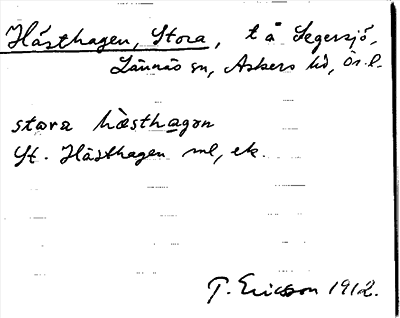 Hästhagen, Stora, t å Segersjö,
Lännäs sn, Askers hd, Ör. l.
stora hæsthagan
St. Hästhagen ml, ek.
T. Ericsson 1912.